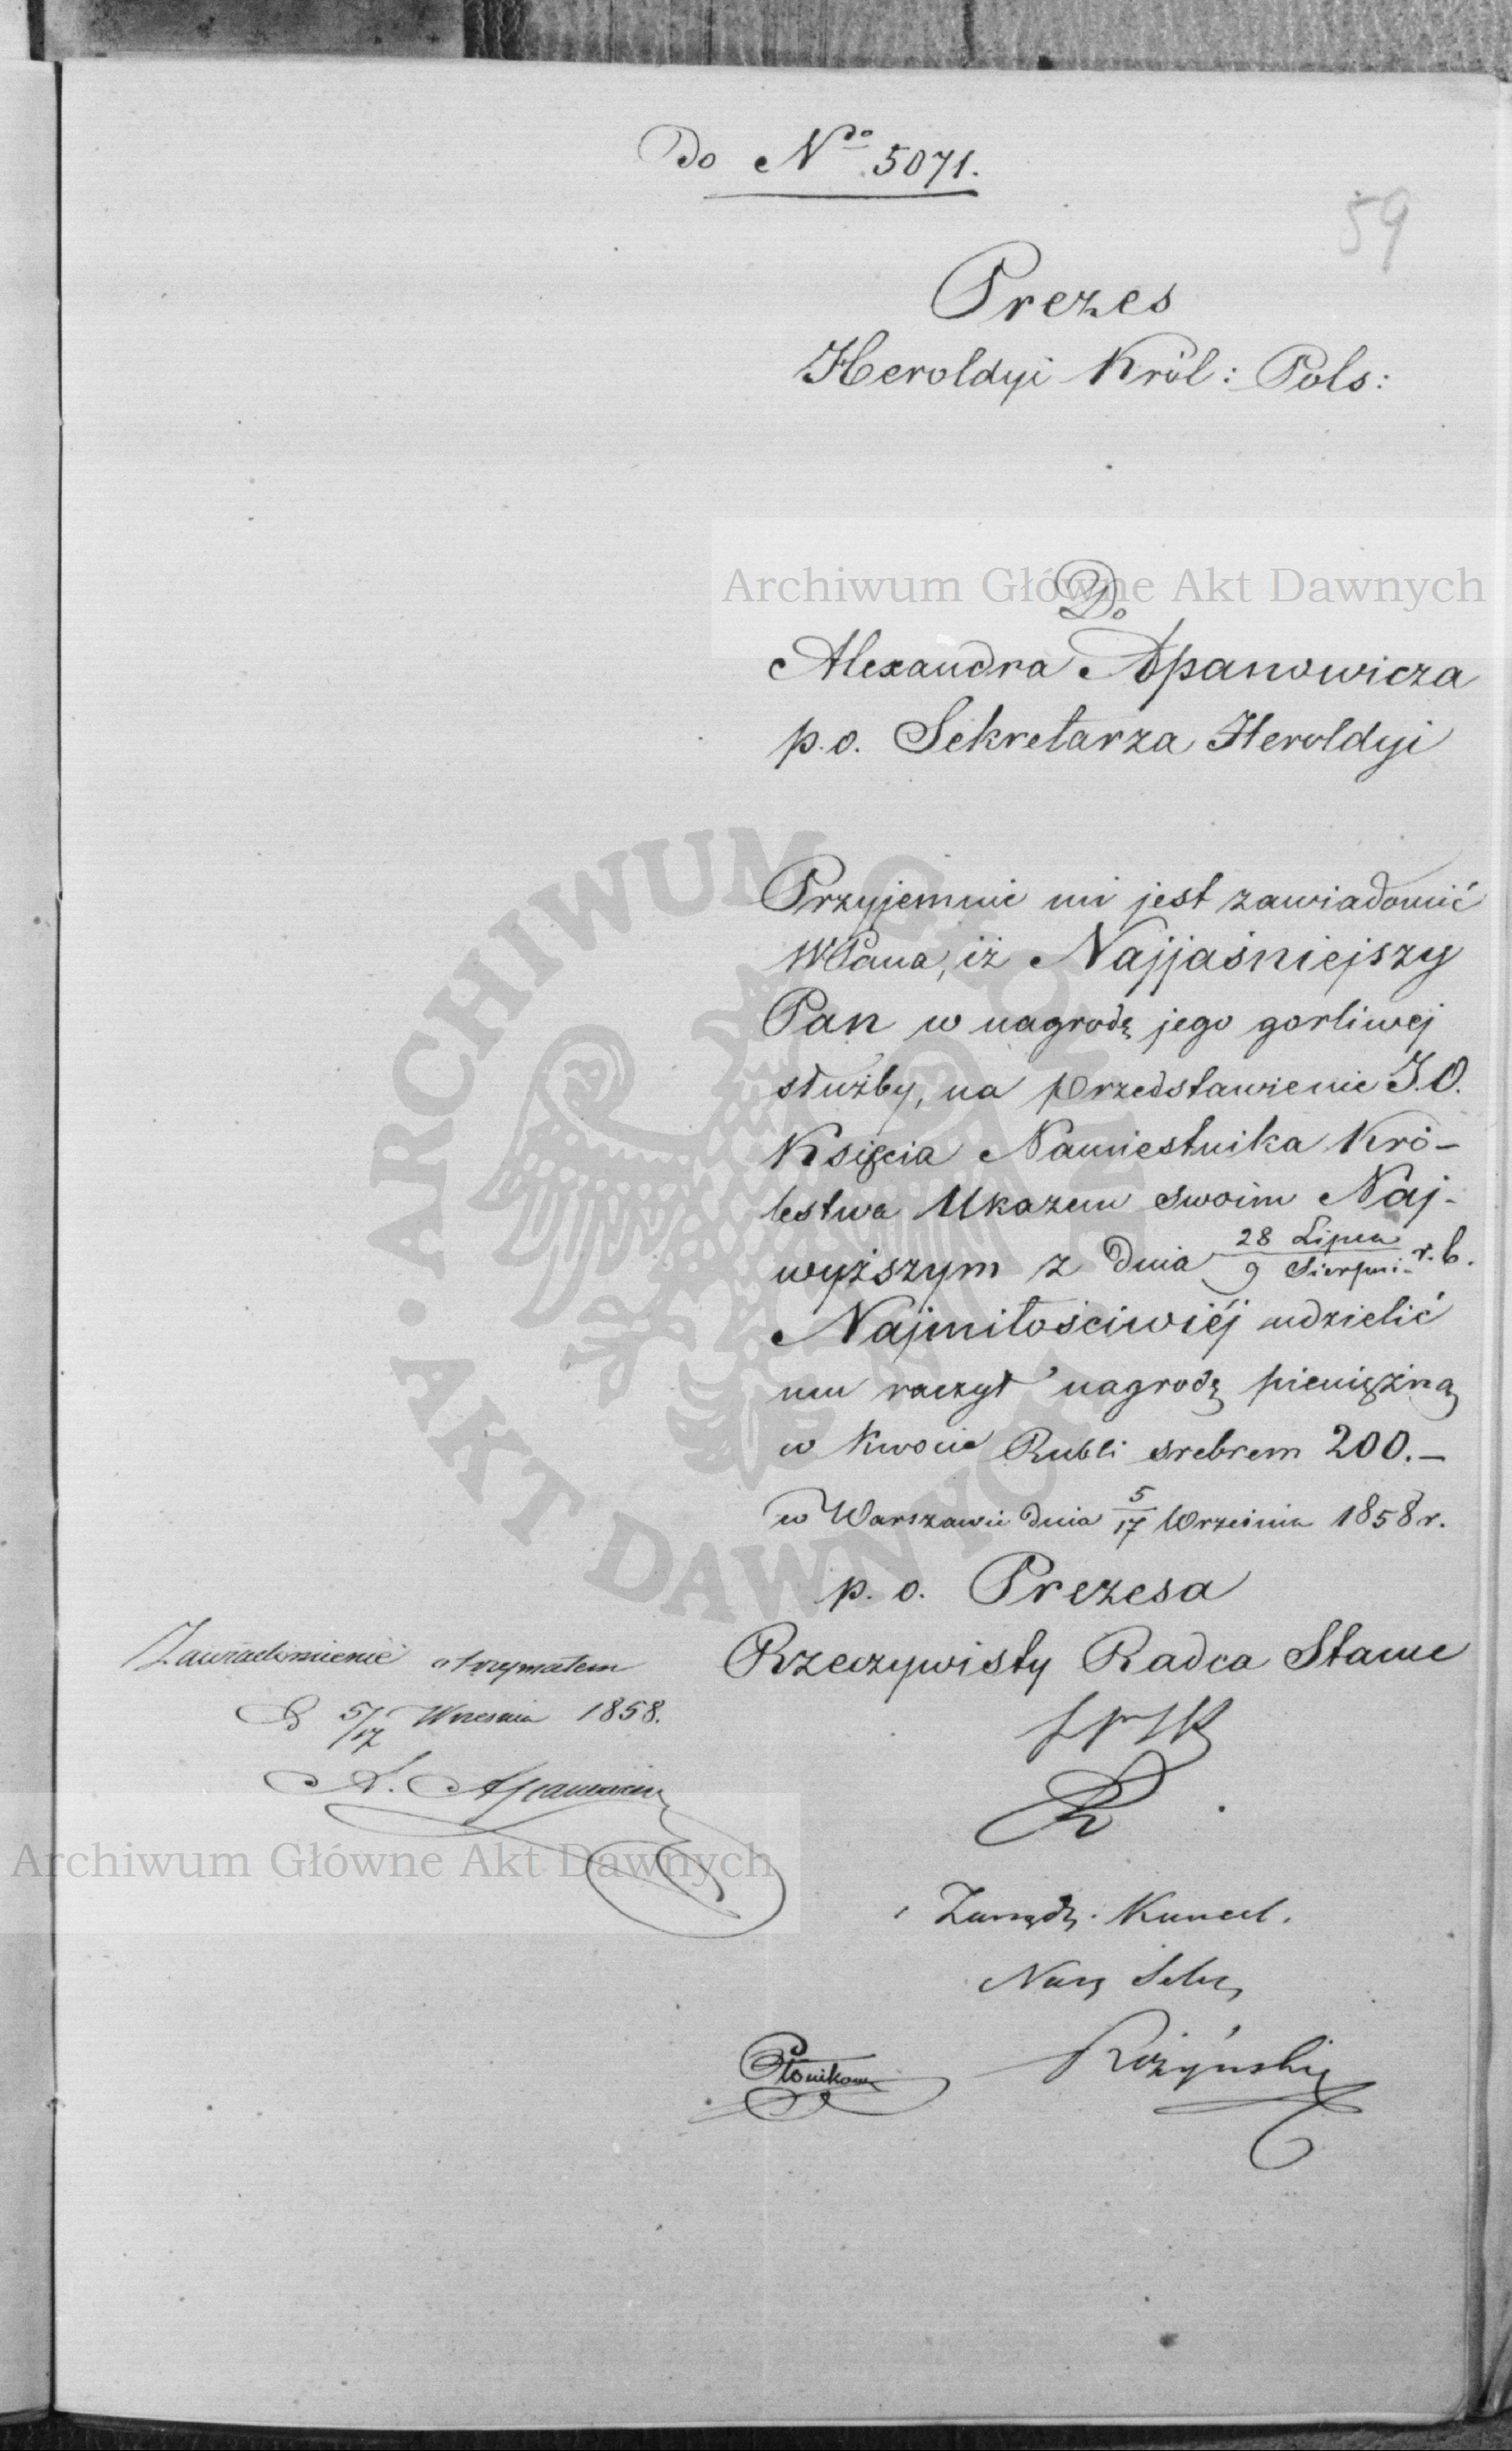 Do No 5071.
59
Prezes
Heroldyi Król: Pols:
Do
Alexandra Apanowicza
p.o. Sekretarza Heroldyi
Przyjemnie mi jest zawiadomić
WPana, iż Najjaśniejszy
Pan w nagrodę jego gorliwej
służby, na przedstawienie J.O.
Księcia Namiestnika Kró-
lestwa Ukazem swoim Naj-
wyższym z dnia 28 Lipca / 9 Sierpni- r.b.
Najmiłościwiéj udzielić
mu raczył nagrodę pieniężną
w kwocie Rubli srebrem 200.-
w Warszawie dnia 5/17 Września 1858 r.
p. o. Prezesa
Rzeczywisty Radca Stanu
Zawiadomienie otrzymałem
D 5/17 Wrzesnia 1858.
A. Apanowicz
Zarządz. Kancel.
Różyński
Archiwum Główne Akt Dawnych
Archiwum Główne Akt Dawnych
ARCHIWUM GŁÓWNE AKT DAWNYCH